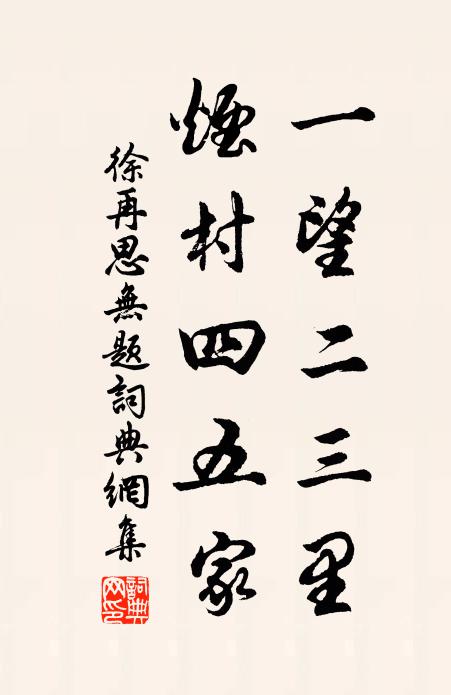 一望二三里
煙村四五家
徐再思無題詞典網集
詞典
网印